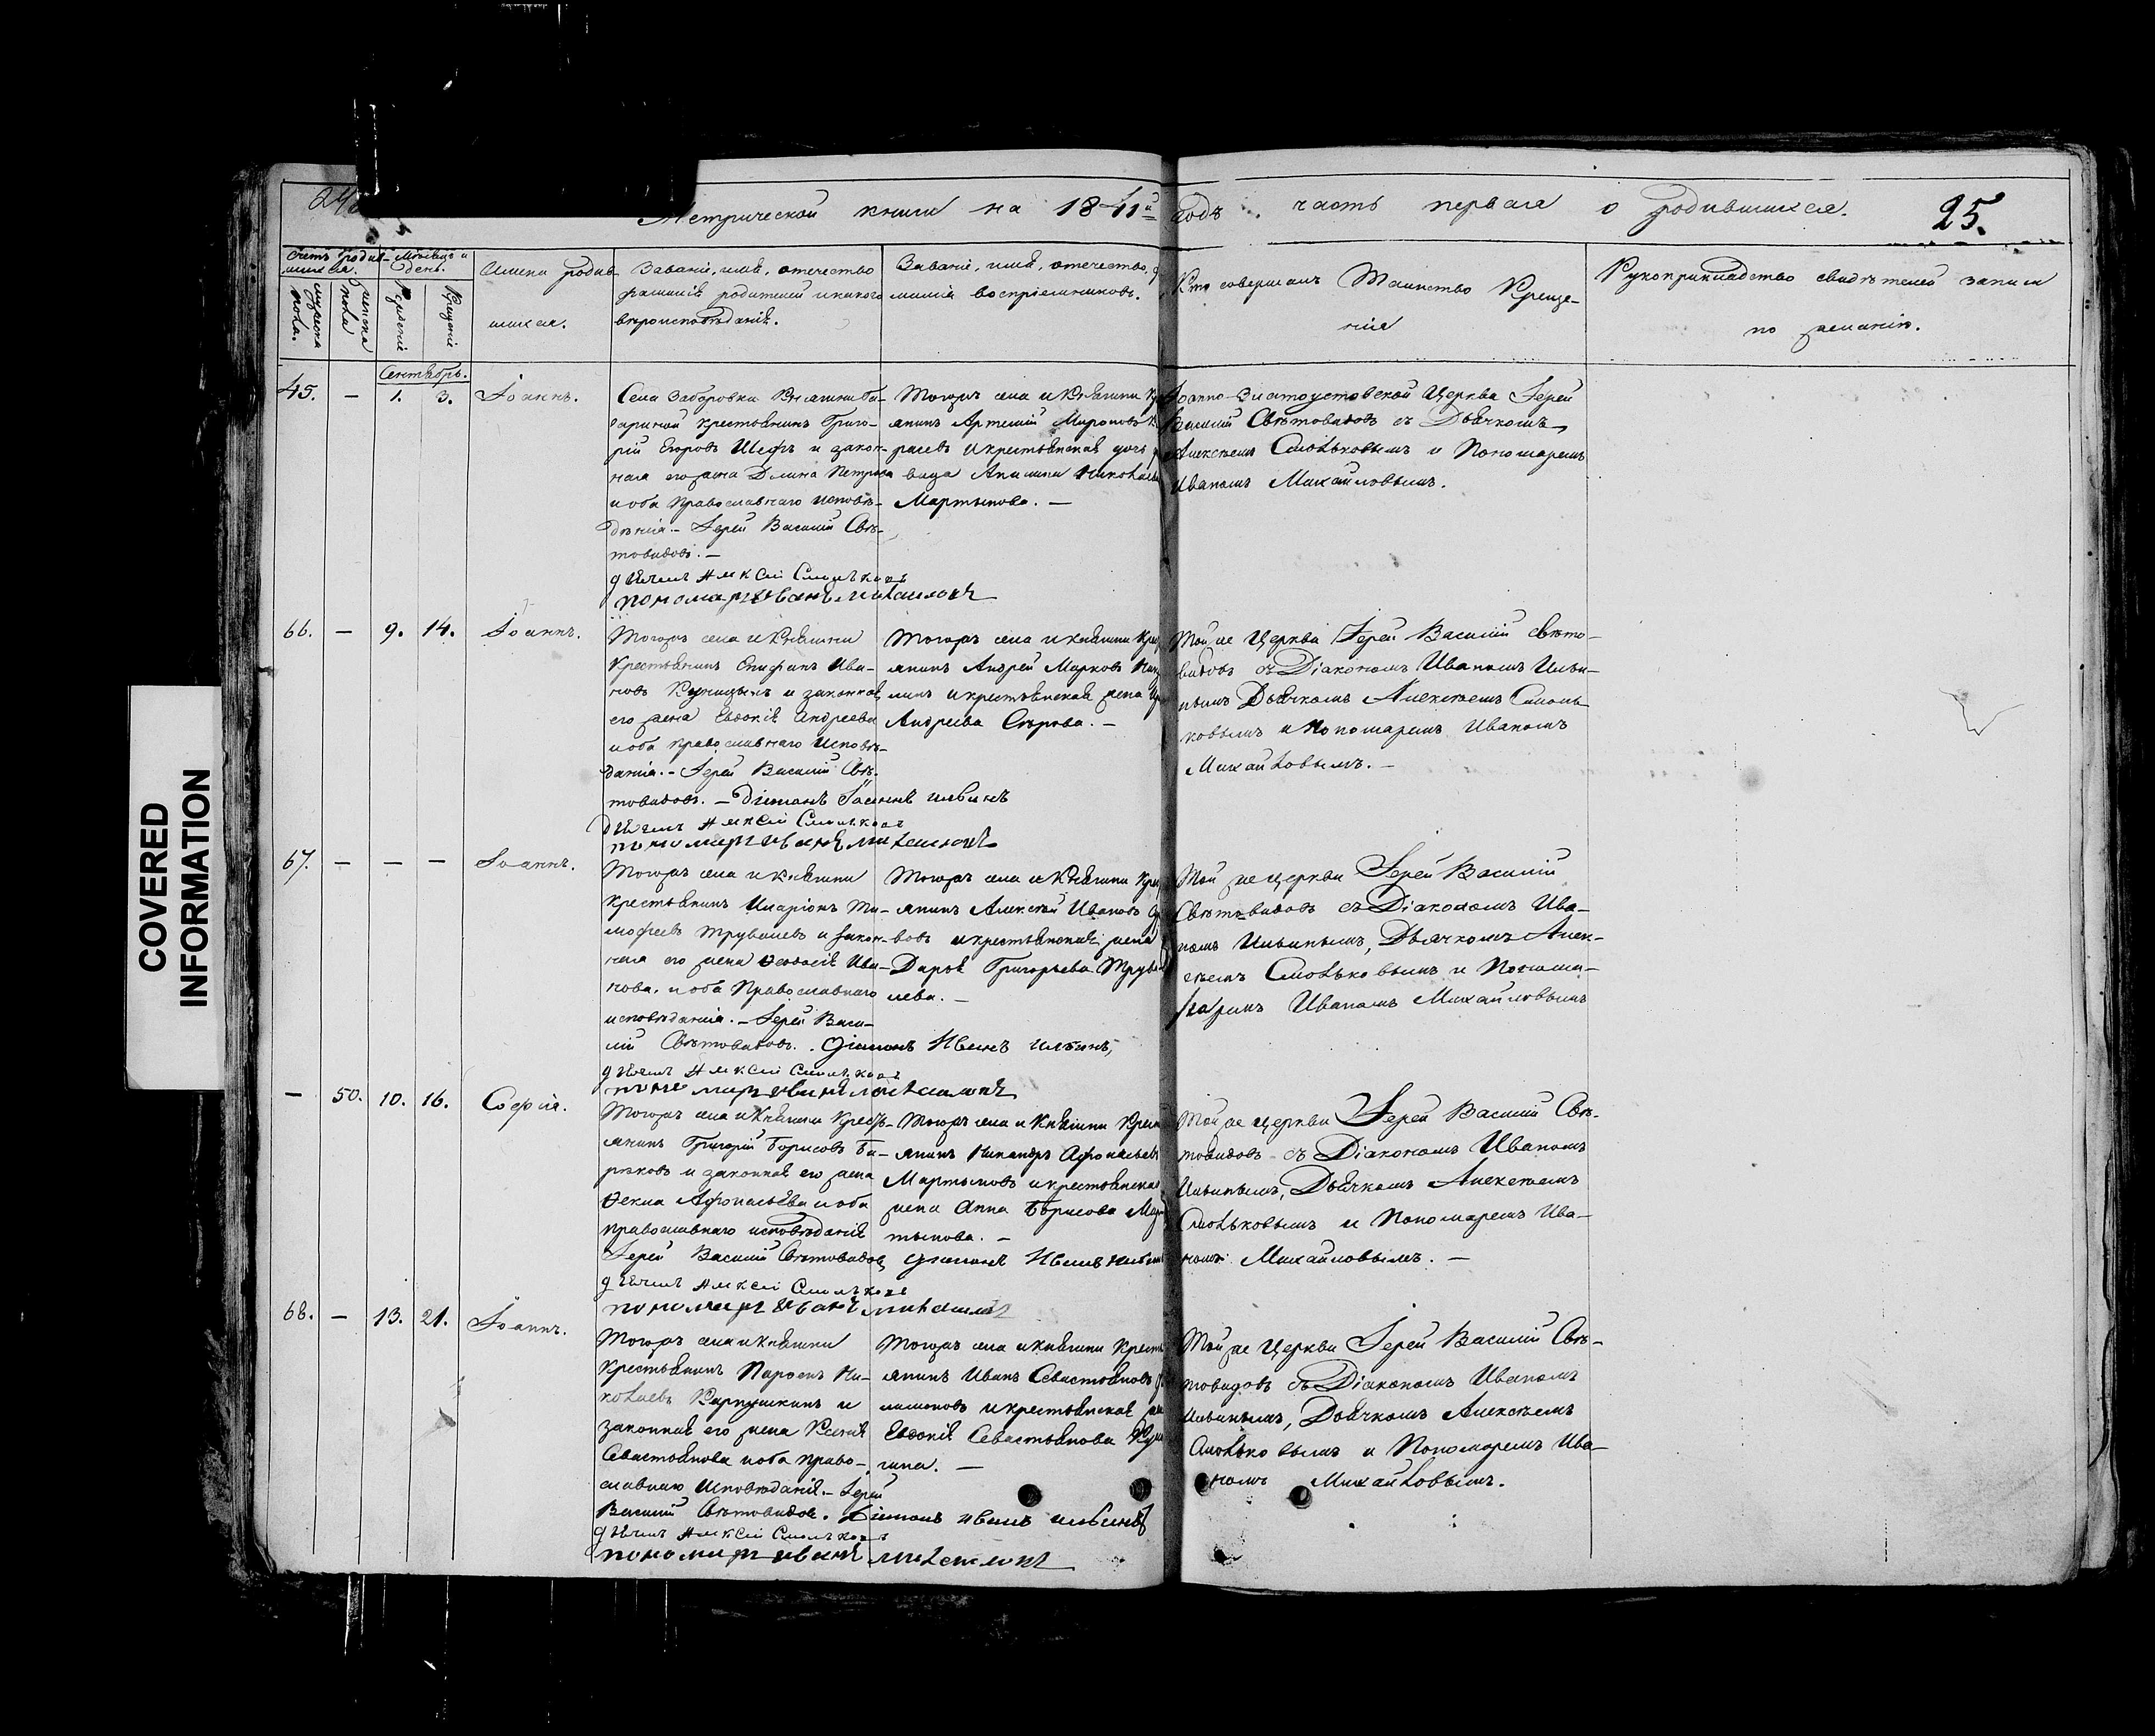 Метрической книги на 1841й годъ. часть первая о родившихся. 25.
Счетъ родив-
шихся.
мужеска
пола.
женска
пола
Мѣсяцъ и
день.
Рожденіе
Крещеніе
Имена родив
шихся.
Званіе, имя, отечество
фамилія родителей и какого
вѣроисповѣданія.
Званіе, имя, отечество,
милія воспріемниковъ.
Кто совершалъ Таинство Креще-
нія
Рукоприкладство свидѣтелей записи
по желанію.
Сентябрь.
45. — 1. 3. Іоаннъ.
Села Заборовки Княгини Га-
гариной крестьянинъ Григо-
рій Егоровъ и закон-
ная его жена Петрова
и оба Православнаго исповѣ-
данія. - Іерей Василій Свѣ-
товидовъ. —
дьячекъ Алексей Смольковъ
пономарь Иванъ Михаиловъ
Тогожъ села и Княгини
янинъ Артемій Мироновъ
и крестьянская дочь
вица Акилина Николаева
Мартынова. —
Іоанно-Златоустовской Церкви Іерей
Василій Свѣтовидовъ съ Дьячкомъ
Алексѣемъ Смольковымъ и Пономаремъ
Иваномъ Михайловымъ.
66. — 9. 14. Іоаннъ.
Тогожъ села и Княгини
Крестьянинъ Епифанъ Ива-
новъ и законная
его жена Евдокія Андреева
и оба православнаго исповѣ-
данія. - Іерей Василій Свѣ-
товидовъ. — Діаконъ Іоаннъ Ильинъ
дьячекъ Алексей Смольковъ
пономарь Иванъ Михаиловъ
Тогожъ села и княгини
янинъ Андрей Марковъ
линъ и крестьянская жена
Андреева Сѣрова. —
Той же Церкви Іерей Василій Свѣто-
видовъ съ Діакономъ Иваномъ Ильи-
нымъ Дьячкомъ Алексѣемъ Смоль-
ковымъ и Пономаремъ Иваномъ
Михайловымъ. —
67. — — — Іоаннъ.
Тогожъ села и княгини
крестьянинъ Иларіонъ Ти-
мофеевъ Трувалевъ и закон-
ная его жена Феодосія Ива-
нова. и оба Православнаго
исповѣданія. — Іерей Васи-
лій Свѣтовидовъ. Діаконъ Иванъ Ильинъ,
дьячекъ Алексей Смольковъ
пономарь Иванъ Михаиловъ
Тогожъ села и Княгини
янинъ Алексѣй Ивановъ
вовъ и крестьянская жена
Дарья Григорьева
лева. —
Той же церкви Іерей Василій
Свѣтовидовъ съ Діакономъ Ива-
номъ Ильинымъ, Дьячкомъ Алек-
сѣемъ Смольковымъ и Понома-
ремъ Иваномъ Михайловымъ
— 50. 10. 16. Софія.
Тогожъ села и Княгини Кресть-
янинъ Григорій Борисовъ Би-
рюковъ и законная его жена
Фекла Афонасьева и оба
православнаго исповѣданія
Іерей Василій Свѣтовидовъ
дьячекъ Алексей Смольковъ
пономарь Иванъ Михаиловъ
Тогожъ села и Княгини
янинъ Никандръ Афонасьевъ
Мартыновъ и крестьянская
жена Анна Борисова
тынова. —
Діаконъ Иванъ Ильинъ
Той же церкви Іерей Василій Свѣ-
товидовъ съ Діакономъ Иваномъ
Ильинымъ, Дьячкомъ Алексѣемъ
Смольковымъ и Пономаремъ Ива-
номъ Михайловымъ. —
68. — 13. 21. Іоаннъ.
Тогожъ села и княгини
Крестьянинъ Парфенъ Ни-
колаевъ Карпушкинъ и
законная его жена Ксенія
Севастьянова и оба право-
славнаго исповѣданія. — Іерей
Василій Свѣтовидовъ. Діаконъ Иванъ Ильинъ
дьячекъ Алексей Смольковъ
пономарь Иванъ Михаиловъ
Тогожъ села и княгини
янинъ Иванъ Севастьяновъ
и крестьянская
Евдокія Севастьянова
гина. —
Той же Церкви Іерей Василій Свѣ-
товидовъ съ Діакономъ Иваномъ
Ильинымъ, Дьячкомъ Алексѣемъ
Смольковымъ и Пономаремъ Ива-
номъ Михайловымъ.
COVERED
INFORMATION